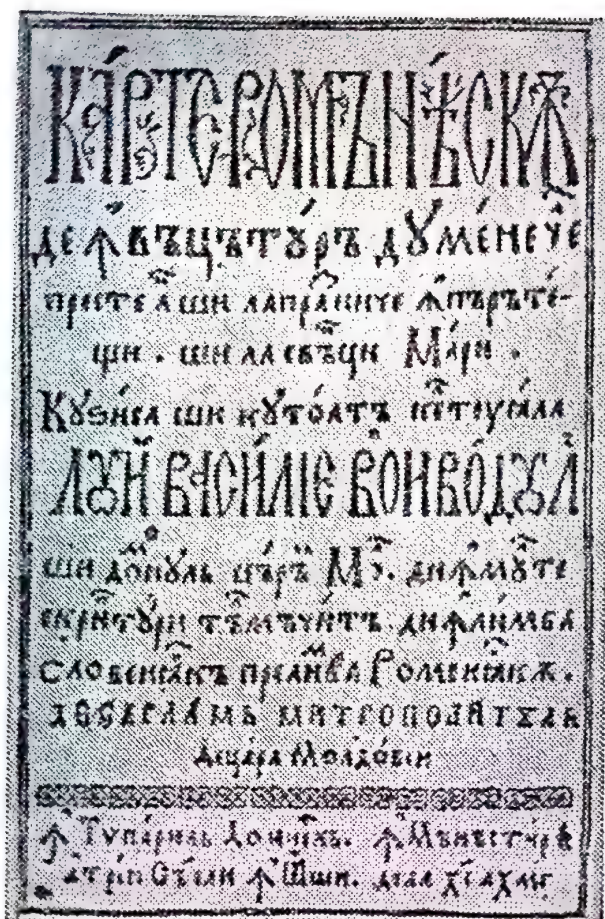 КА́РТЕ РОМЪНѢСКѪ
ДЕ ꙞВЪЦЪТꙊ́РЪ ДꙊМЕ́НЕЧЕ
престе а҃н ши ла пра҃зниче ꙟпърѫте-
щи. ши ла свⷮъци Ма́ри.
Кꙋ зи́са ши кꙋ то́атъ
ЛꙊЙ ВАСИ́ЛІЕ ВОИВО́ДꙊЛ
ши до́мнꙋль цъ́рⷺ Мⷧ҇о. дин мꙋⷧте
скриⷫтꙋри тъⷧмъчитъ. дин лимба
словенѣскъ пре лиⷨба Роменѣскѫ.
Митрополитꙋль
Де цара Молдо́віи
Ꙟ Типарюль Домнеск. Ꙟ Мънъстирѣ
а три́и Съ҃тели ꙟ Ꙗши. дела х҃с ҂ахмг